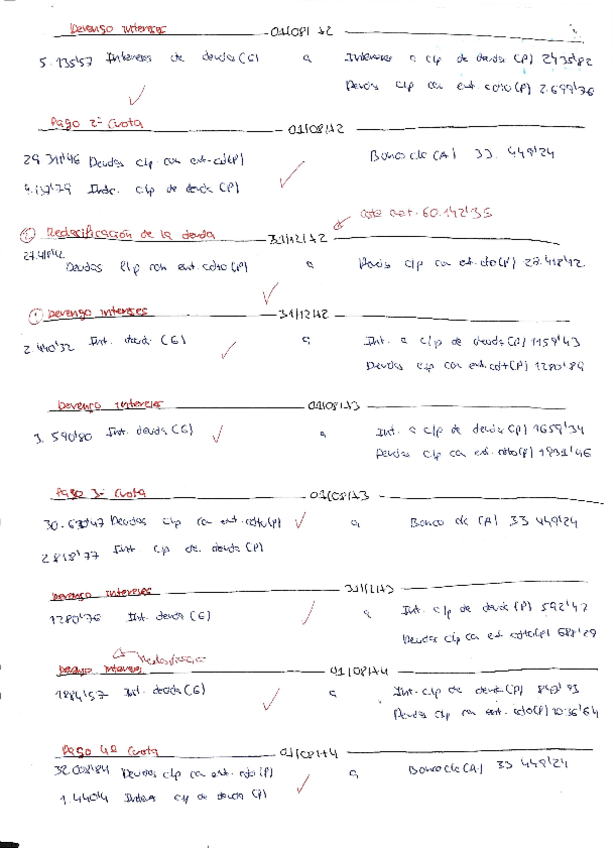 Devengo intereses 01/08/12
5.135'57 Intereses de deuda (G) a Intereses a c/p de deuda (P) 2435'82
Deudas c/p con ent. cdto (P) 2.699'76
Pago 2ª Cuota 01/08/12
29.311'46 Deudas c/p con ent. cd (P) Banco c/c (A) 33.449'24
4.137'79 Int. c/p de deuda (P)
coste amt. 60.142'35
① Reclasificación de la deuda 31/12/12
27.418'42 Deudas l/p con ent. cdto (P) a Deudas c/p con ent. cdto (P) 27.418'42
① Devengo intereses 31/12/12
2.440'32 Int. deuda (G) a Int. a c/p de deuda (P) 1159'43
Deudas c/p con ent. cdto (P) 1280'89
Devengo intereses 01/08/13
3.590'80 Int. deuda (G) a Int. a c/p de deuda (P) 1659'34
Deudas c/p con ent. cdto (P) 1931'46
Pago 3ª Cuota 01/08/13
30.630'47 Deudas c/p con ent. cdto (P) a Banco c/c (A) 33.449'24
2818'77 Int. c/p de deuda (P)
Devengo intereses 31/12/13
1280'76 Int. deuda (G) a Int. c/p de deuda (P) 592'47
Deudas c/p con ent. cdto (P) 688'29
Devengo intereses 01/08/14
1884'57 Int. deuda (G) a Int. c/p de deuda (P) 847'93
Deudas c/p con ent. cdto (P) 1036'64
Pago 4ª Cuota 01/08/14
32.008'84 Deudas c/p con ent. cdto (P) a Banco c/c (A) 33.449'24
1.440'4 Intereses c/p de deuda (P)